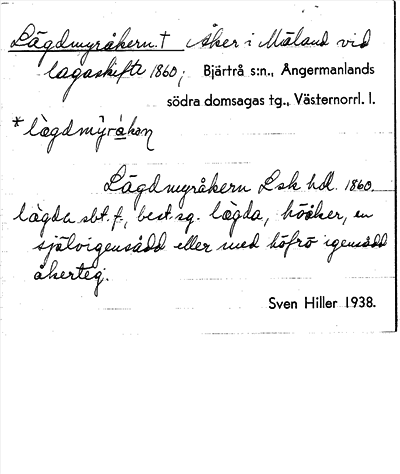 Lägdmyråkern. † Åker i Mäland vid
lagaskifte 1860; Bjärtrå s:n., Ångermanlands
södra domsagas tg., Västernorrl. l.
*lægdmỳråkɐn
Lägdmyråkern Lsk hdl. 1860
lægda sbt. f., best. sg. lægda, höåker, en
självigensådd eller med höfrö igensådd
åkerteg.
Sven Hiller 1938.